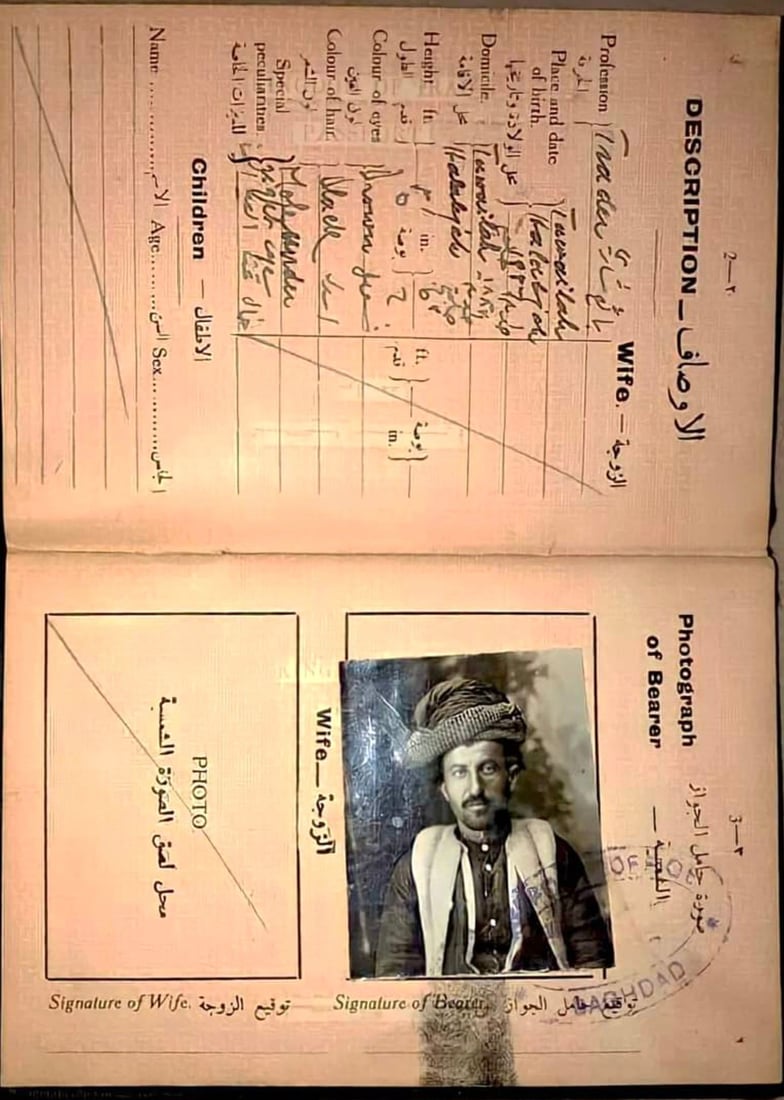 2—٢
DESCRIPTION — الاوصاف
Wife. — الزوجة
Profession } Trader
الحرفة
Place and date } Tawailah
of birth. Halabjah
محل الولادة وتاريخها
Domicile. } Tawailah
محل الاقامة Halabjah
Height ft. in. ft. in.
الطول قدم بوصة قدم بوصة
Colour of eyes } Brown
لون العين
Colour of hair } Black اسود
لون الشعر
Special } Mole under
peculiarities. right eye
المميزات الخاصة
Children — الاطفال
Name ............ الاسم Age ...... السن Sex ......... الجنس
3—٣
Photograph
of Bearer —
صورة حامل الجواز
الشمسية
BAGHDAD
Signature of Bearer. توقيع حامل الجواز
Wife — الزوجة
PHOTO
محل لصق الصورة الشمسية
Signature of Wife. توقيع الزوجة